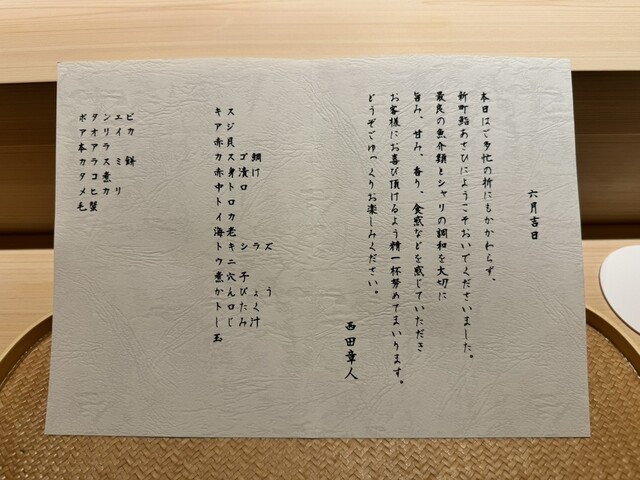 六月吉日
本日はご多忙の折にもかかわらず、
新町鮨あさひにようこそおいでくださいました。
最良の魚介類とシャリの調和を大切に
旨み、甘み、香り、食感などを感じていただき
お客様にお喜び頂けるよう精一杯努めてまいります。
どうぞごゆっくりお楽しみください。
西田章人
キス
アジ
赤貝
カスゴ鯛
赤身漬け
中トロ
トロ
イカ
海老
トキシラズ
ウニ
煮穴子
かんぴょう
トロたく
しじみ汁
玉
ボタンエビ
アオリイカ
本アラ
カラスミ餅
タコ煮
メヒカリ
毛蟹